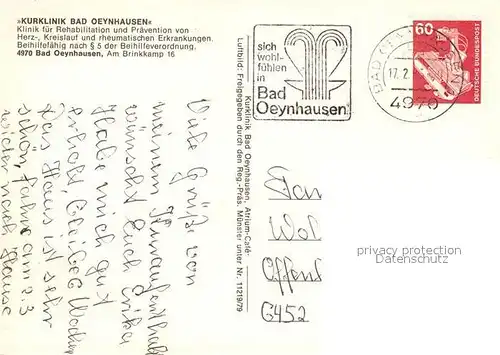 »KURKLINIK BAD OEYNHAUSEN«
Klinik für Rehabilitation und Prävention von
Herz-, Kreislauf und rheumatischen Erkrankungen.
Beihilfefähig nach § 5 der Beihilfeverordnung.
4970 Bad Oeynhausen, Am Brinkkamp 16
sich
wohl-
fühlen
in
Bad
Oeynhausen
BAD OEYNHAUSEN
17.2.
4970
60
DEUTSCHE BUNDESPOST
Kurklinik Bad Oeynhausen, Atrium-Café
Luftbild: Freigegeben durch den Reg.-Präs. Münster unter Nr. 11219/79
Viele Grüße von
meinem Kuraufenthalt
wünscht Euch Erika
Habe mich gut
erholt, bei Wochen
Das Haus ist sehr
schön, fahre am 2.3
wieder nach Hause
Fam
Wol
Offenb
6452
privacy protection
Datenschutz